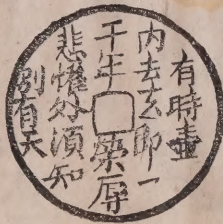 有時壺
内去去即一
千年榮辱
悲懽外須知
別有天